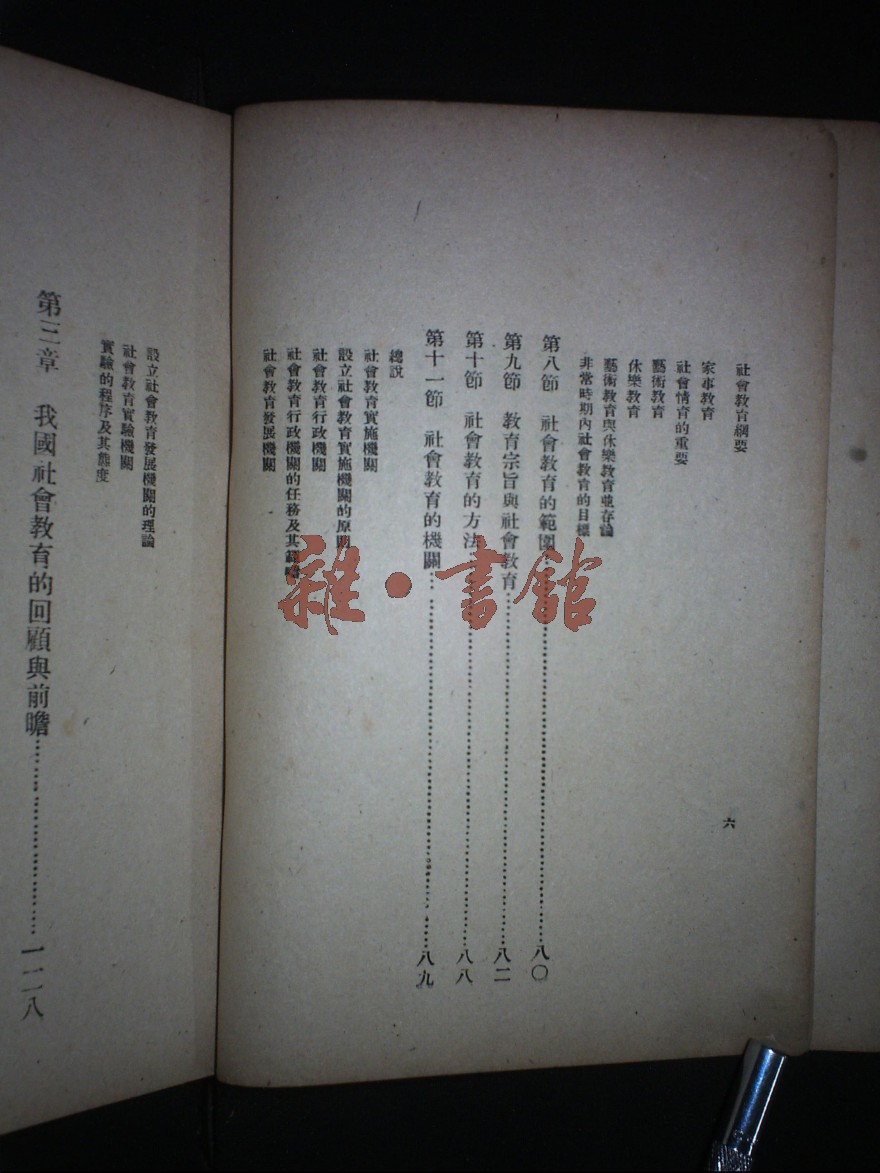 社會教育綱要
六
家事教育
社會情育的重要
藝術教育
休樂教育
藝術教育與休樂教育並存論
非常時期內社會教育的目標
第八節 社會教育的範圍……八〇
第九節 教育宗旨與社會教育……八二
第十節 社會教育的方法……八八
第十一節 社會教育的機關……八九
總說
社會教育實施機關
設立社會教育實施機關的原則
社會教育行政機關
社會教育行政機關的任務及其
社會教育發展機關
設立社會教育發展機關的理論
社會教育實驗機關
實驗的程序及其態度
第三章 我國社會教育的回顧與前瞻……一二八
雜·書館